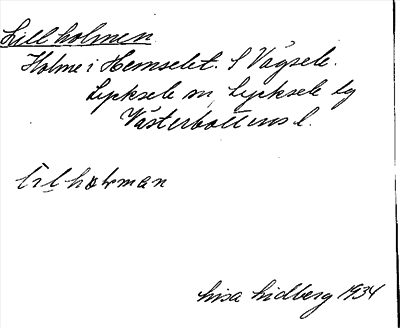 Lillholmen
Holme i Hemselet. S Vägsele.
Lycksele sn, Lycksele lg
Västerbottens l.
lilholman
Lisa Lidberg 1934